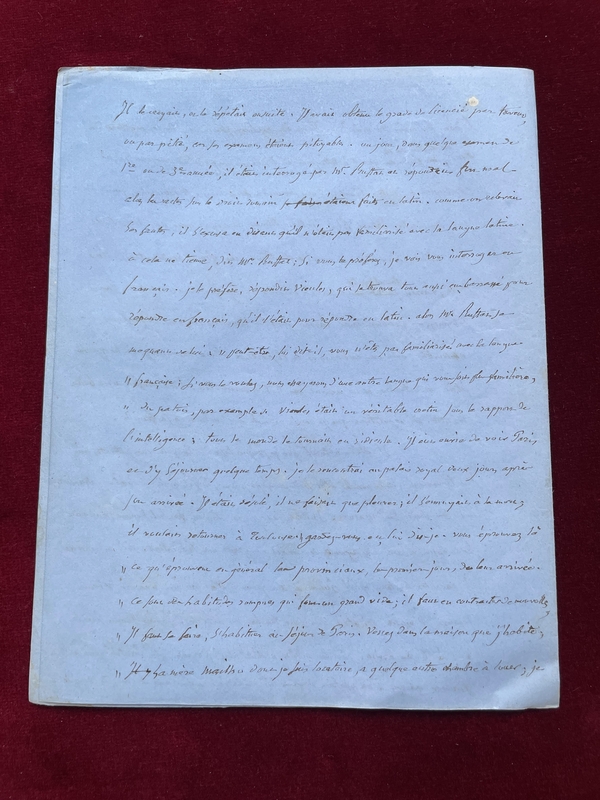 Il le croyait, et le répétait ensuite. Il avait obtenu le grade de licencié par faveur,
ou par pitié, car ses examens étaient pitoyables. un jour, dans quelque examen de
1re ou de 3me année, il était interrogé par Mr. Ruffat et répondait fort mal
des textes sur le droit romain faits en latin. comme on relevait
ses fautes, il s'excusa en disant qu'il n'était pas familiarisé avec la langue latine.
à cela ne tienne, dit Mr. Ruffat; si vous le préférez, je vais vous interroger en
français. je le préfère, répondit Vioules, qui se trouva tout aussi embarrassé pour
répondre en français, qu'il l'était pour répondre en latin. alors Mr. Ruffat, se
moquant de lui: " peut-être, lui dit-il, vous n'êtes pas familiarisé avec la langue
" française; si vous le voulez, nous essayerons d'une autre langue qui vous soit plus familière,
" du patois, par exemple. Vioules était un véritable crétin sous le rapport de
l'intelligence; tout le monde le tournait en ridicule. Il eut envie de voir Paris,
et d'y séjourner quelque temps. je le rencontrai au palais royal deux jours après
son arrivée. Il était désolé, il ne faisait que pleurer; il s'ennuyait à la mort;
il voulait retourner à Toulouse; gardez-vous en lui dis-je. vous éprouvez là
" ce qu'éprouvent en général les provinciaux, les premiers jours de leur arrivée.
" ce sont des habitudes rompues qui font un grand vide; il faut en contracter de nouvelles,
" Il faut se faire, s'habituer au séjour de Paris. Venez dans la maison que j'habite,
" La mère Maistre dont je suis locataire, a quelque autre chambre à louer; je